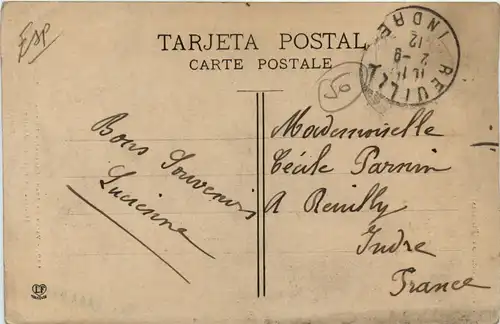 Esp
TARJETA POSTAL
CARTE POSTALE
REUILLY
INDRE
2 -9
12
50
Bons Souvenirs
Lucienne
Mademoiselle
Cécile Parnin
A Reuilly
Indre
France